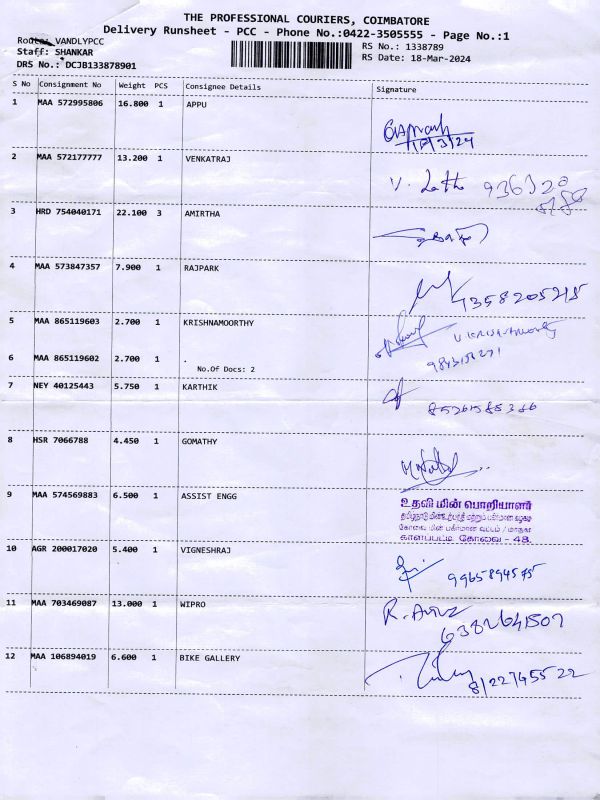 THE PROFESSIONAL COURIERS, COIMBATORE
Delivery Runsheet - PCC - Phone No.:0422-3505555 - Page No.:1
Route: VANDLYPCC
Staff: SHANKAR
DRS No.: DCJB133878901
RS No.: 1338789
RS Date: 18-Mar-2024
S No Consignment No Weight PCS Consignee Details Signature
1 MAA 572995806 16.800 1 APPU
18/3/24
2 MAA 572177777 13.200 1 VENKATRAJ
V. Latha 936320
3 HRD 754040171 22.100 3 AMIRTHA
4 MAA 573847357 7.900 1 RAJPARK
9358205215
5 MAA 865119603 2.700 1 KRISHNAMOORTHY
6 MAA 865119602 2.700 1 .
No.Of Docs: 2
7 NEY 40125443 5.750 1 KARTHIK
8526585386
8 HSR 7066788 4.450 1 GOMATHY
9 MAA 574569883 6.500 1 ASSIST ENGG
உதவி மின் பொறியாளர்
தமிழ்நாடு மின்உற்பத்தி மற்றும் பகிர்மான கழகம்
கோவை மின் பகிர்மான வட்டம் / மாநகர்
காளப்பட்டி, கோவை - 48.
10 AGR 200017020 5.400 1 VIGNESHRAJ
9965894575
11 MAA 703469087 13.000 1 WIPRO
6382641507
12 MAA 106894019 6.600 1 BIKE GALLERY
8122745522